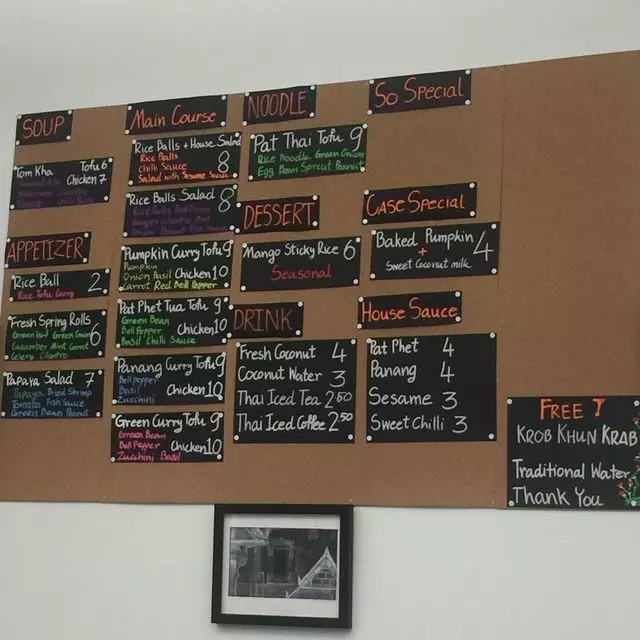 SOUP
Tom Kha Tofu 6
Chicken 7
APPETIZER
Rice Ball 2
Rice Tofu Curry
Fresh Spring Rolls 6
Green Onion
Cucumber Mint Carrot
Celery Cilantro
Papaya Salad 7
Papaya Dried Shrimp
Tomato Fish Sauce
Green Bean Peanut
Main Course
Rice Balls + House Salad 8
Rice Balls
Chilli Sauce
Salad with Sesame
Rice Balls Salad 8
Pumpkin Curry Tofu 9
Pumpkin
Onion Basil Chicken 10
Carrot Red Bell Pepper
Pat Phet Tua Tofu 9
Green Bean
Bell Pepper Chicken 10
Basil Chilli Sauce
Panang Curry Tofu 9
Bell pepper
Basil Chicken 10
Zucchini
Green Curry Tofu 9
Green Bean
Bell Pepper Chicken 10
Zucchini Basil
NOODLE
Pat Thai Tofu 9
Rice Noodle Green Onion
Egg Bean Sprout Peanut
DESSERT
Mango Sticky Rice 6
Seasonal
DRINK
Fresh Coconut 4
Coconut Water 3
Thai Iced Tea 2 50
Thai Iced Coffee 2 50
So Special
Case Special
Baked Pumpkin 4
+
Sweet Coconut milk
House Sauce
Pat Phet 4
Panang 4
Sesame 3
Sweet Chilli 3
FREE
KROB KHUN KRAB
Traditional Water
Thank You